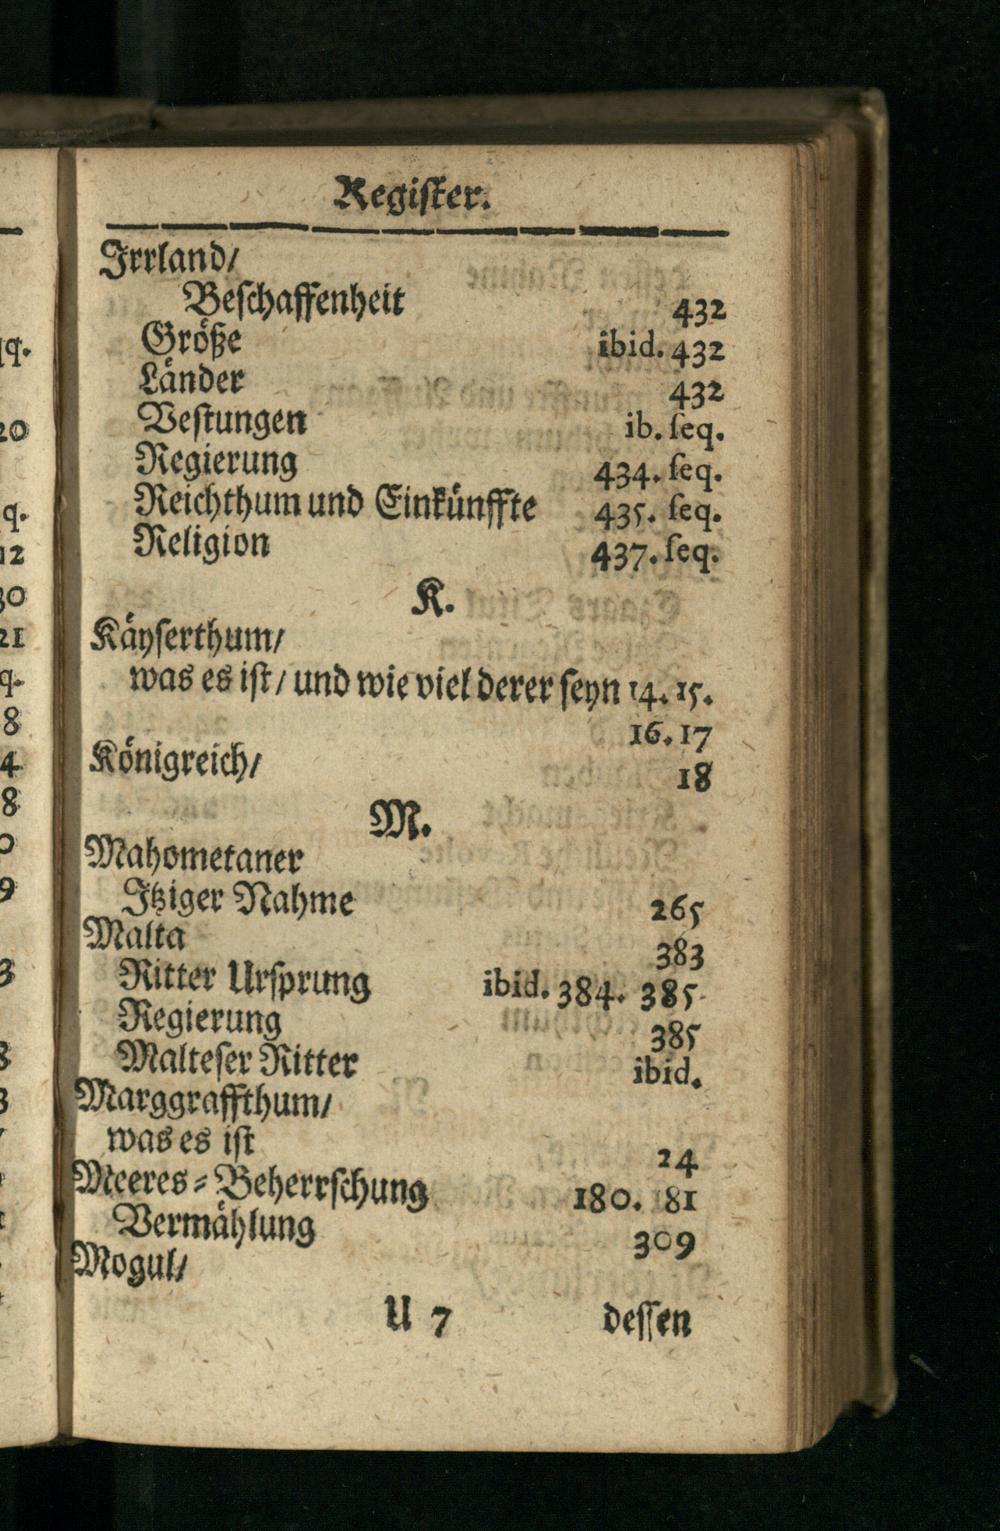 Regiſter.
Irrland/
Beſchaffenheit 432
Größe ibid. 432
Länder 432
Veſtungen ib. ſeq.
Regierung 434. ſeq.
Reichthum und Einkünffte 435. ſeq.
Religion 437. ſeq.
K.
Käyſerthum/
was es iſt / und wie viel derer ſeyn 14. 15.
16. 17
Königreich/ 18
M.
Mahometaner
Itziger Nahme 265
Malta 383
Ritter Urſprung ibid. 384. 385
Regierung 385
Malteſer Ritter ibid.
Marggraffthum/
was es iſt 24
Meeres-Beherrſchung 180. 181
Vermählung 309
Mogul/
U 7 deſſen